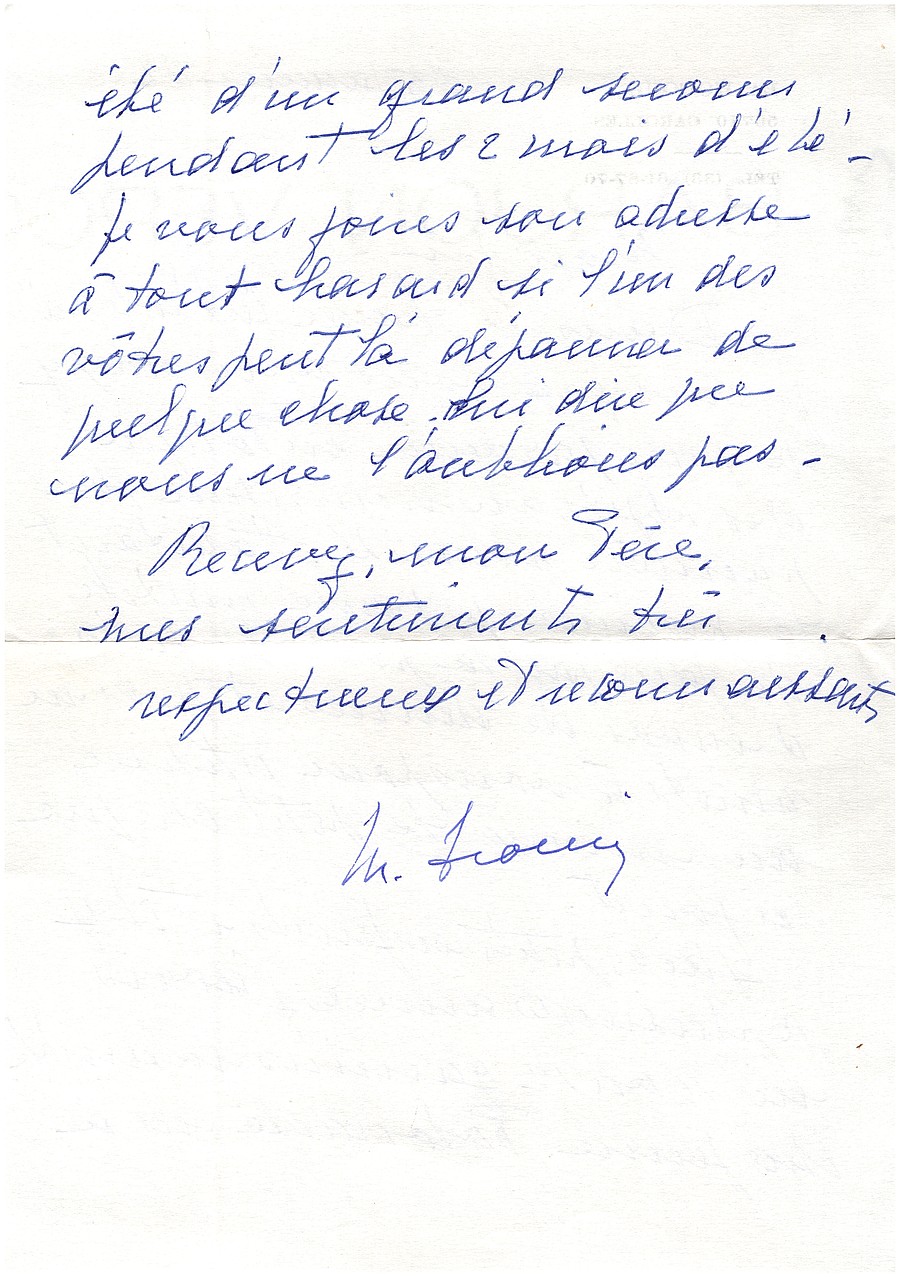 été d'un grand secours
pendant les 2 mois d'été -
Je vous joins son adresse
à tout hasard si l'un des
vôtres peut là dépanner de
quelque chose. Lui dire que
nous ne l'oublions pas -
Recevez, mon Père,
mes sentiments très
respectueux et reconnaissants
M.